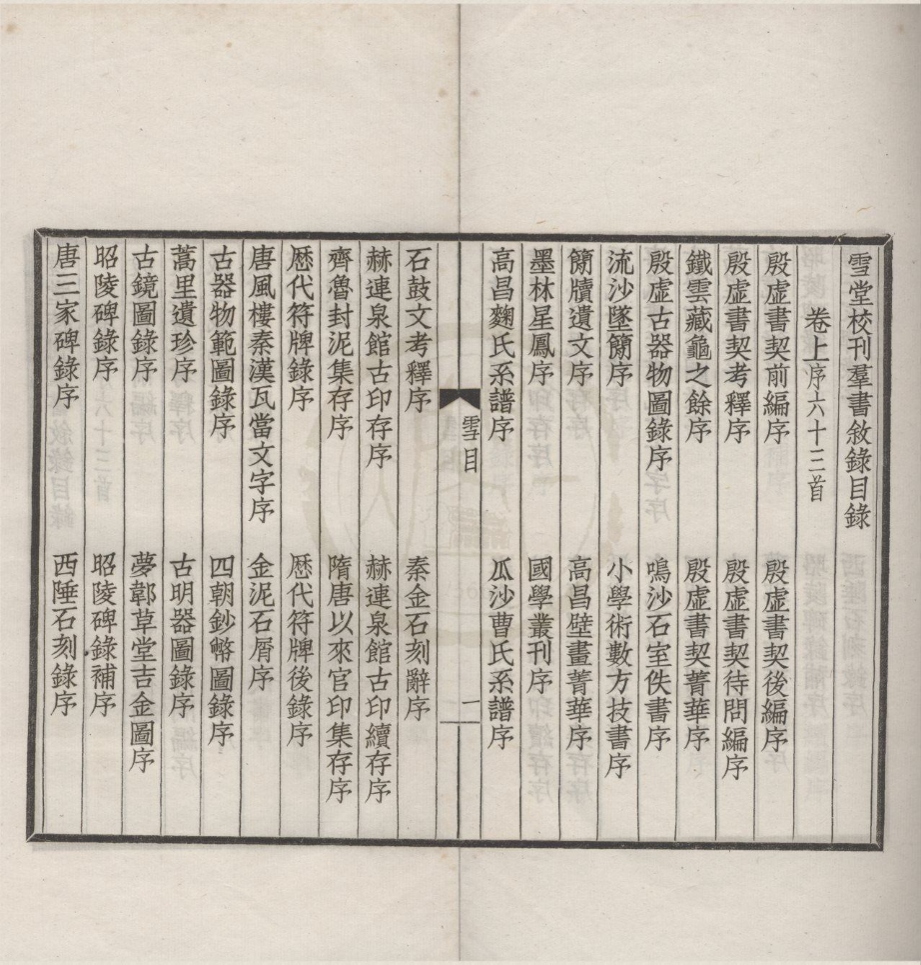 雪堂校刊羣書敘錄目錄
卷上序六十三首
殷虛書契前編序　殷虛書契後編序
殷虛書契考釋序　殷虛書契待問編序
鐵雲藏龜之餘序　殷虛書契菁華序
殷虛古器物圖錄序　鳴沙石室佚書序
流沙墜簡序　小學術數方技書序
簡牘遺文序　高昌壁畫菁華序
墨林星鳳序　國學叢刊序
高昌麴氏系譜序　瓜沙曹氏系譜序
雪目　一
石鼓文考釋序　秦金石刻辭序
赫連泉館古印存序　赫連泉館古印續存序
齊魯封泥集存序　隋唐以來官印集存序
歷代符牌錄序　歷代符牌後錄序
唐風樓秦漢瓦當文字序　金泥石屑序
古器物範圖錄序　四朝鈔幣圖錄序
蒿里遺珍序　古明器圖錄序
古鏡圖錄序　夢郼草堂吉金圖序
昭陵碑錄序　昭陵碑錄補序
唐三家碑錄序　西陲石刻錄序